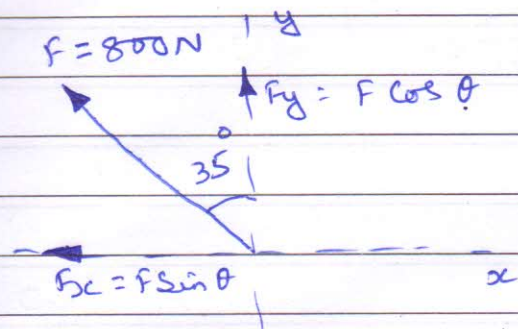 F = 800N
y
Fy = F Cos θ
35°
Fx = F Sin θ
x